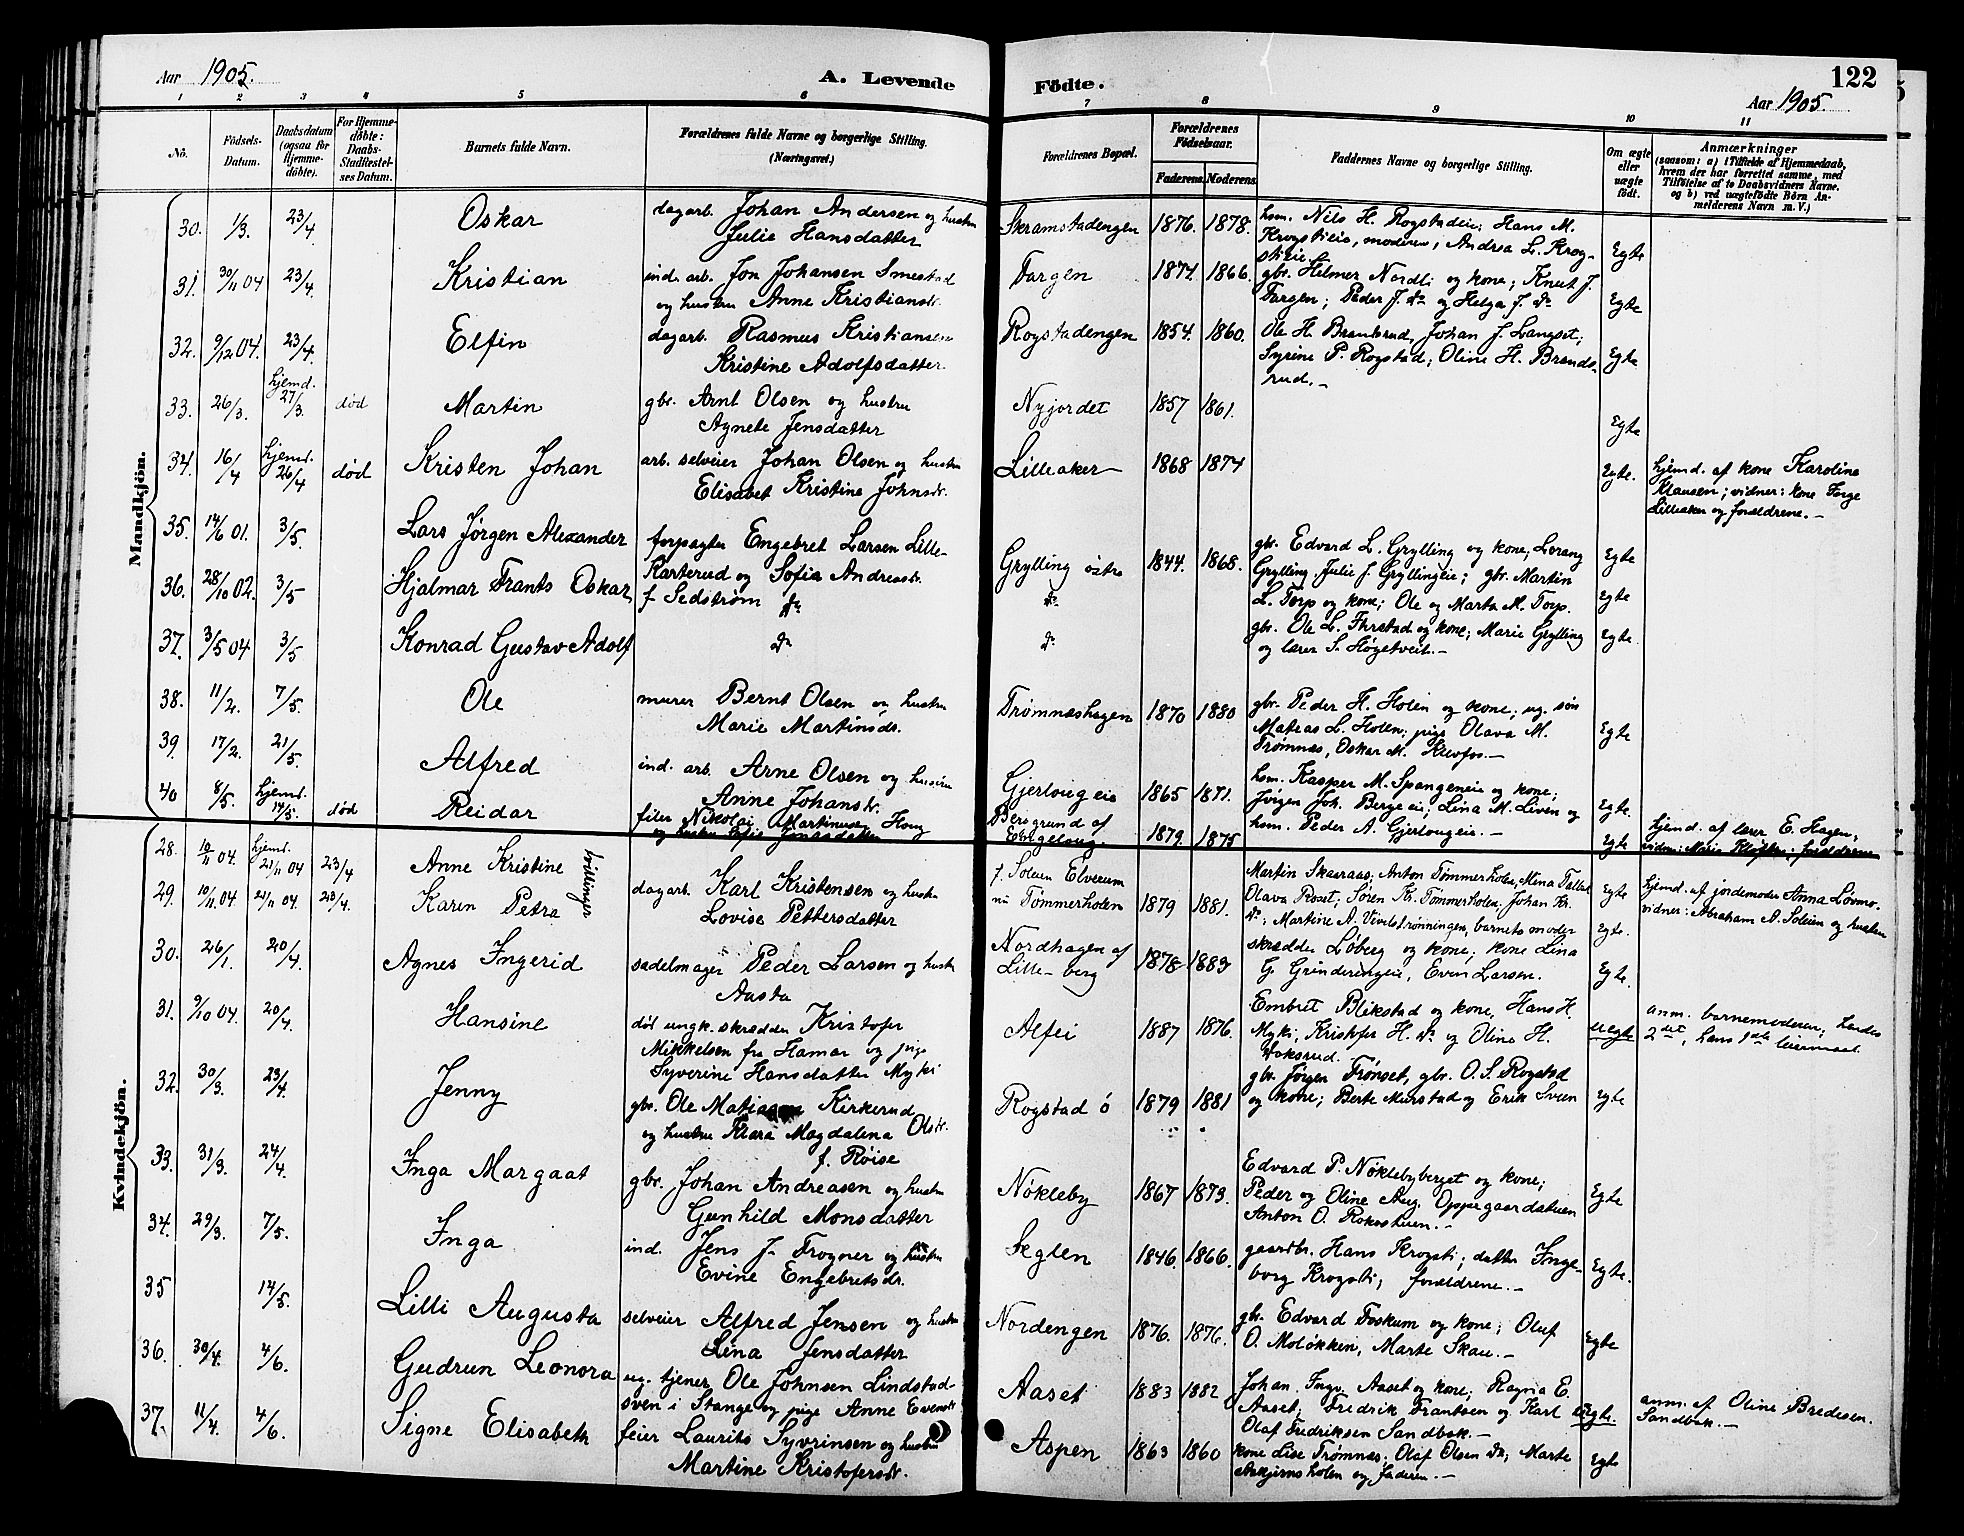 Aar 1905.
A. Levende Födte.
122
Aar 1905.
1 2 3 4 5 6 7 8 9 10 11
No.
Födsels-Datum.
Daabsdatum (ogsaa for Hjemmedöbte).
For Hjemmedöbte: Daabs-Stadfæstelses Datum.
Barnets fulde Navn.
Forældrenes fulde Navne og borgerlige Stilling. (Næringsvei.)
Forældrenes Bopæl.
Forældrenes Födselsaar.
Faderens. Moderens.
Faddernes Navne og borgerlige Stilling.
Om ægte eller uægte födt.
Anmærkninger
(saasom: a) i Tilfælde af Hjemmedaab, hvem der har forrettet samme, med Tilföielse af to Daabsvidners Navne, og b) ved uægtefödte Börn Anmelderens Navn m. V.)
Mandkjön.
30. 1/3. 23/4. Oskar
dagarb. Johan Andersen og hustru
Julie Hansdatter
Skramstadengen 1876. 1878.
hsm. Nils H. Rogstadeie; Hans M.
Krogstieie, moderen; Andrea L. Krog-
stieie.
Egte
31. 30/11 04 23/4. Kristian
ind. arb. Jon Johansen Smestad
og hustru Anne Kristiansdr.
Targen 1874. 1866.
gbr. Helmer Nordli og kone; Knut J.
Targen; Peder J. do og Helga J. do
Egte
32. 9/12 04. 23/4. Elfin
dagarb. Rasmus Kristiansen
Kristine Adolfsdatter.
Rogstadengen 1854. 1860.
Ole H. Brandsrud, Johan J. Langset;
Syrine P. Rogstad; Oline H. Brands-
rud.-
Egte
33. 26/3. hjemd. 27/3. død Martin
gbr. Arnt Olsen og hustru
Agnete Jensdatter
Nyjordet 1857 1861.
Egte
34. 16/4 hjemd. 26/4 død Kristen Johan
arb. selveier Johan Olsen og hustru
Elisabet Kristine Johnsdr.
Lilleaker 1868 1874
Egte.
hjemd. af kone Karoline
Klausen; vidner: kone Inge
Lilleaker og forældrene.-
35. 14/6 01. 3/5. Lars Jørgen Alexander
forpagter Engebret Larsen Lille-
Karterud og Sofia Andreasdr.
f Sedström
Grylling østre 1844. 1868.
gbr. Edvard L. Grylling og kone; Lorang
Grylling, Julie J. Gryllingeie; gbr. Martin
Egte
36. 28/10 02. 3/5 Hjalmar Frants Oskar
do do
L. Torp og kone; Ole og Marta M. Torp.
Egte
37. 3/5 04 3/5 Konrad Gustav Adolf
do do
gbr. Ole L. Thrstad og kone; Marie Grylling
og lærer S. Høgetveit.-
Egte.
38. 11/2. 7/5. Ole
murer Bernt Olsen og hustru
Marie Martinsdr.
Trømnæshagen 1870 1880
gbr. Peder H. Holen og kone; ug. søn
Matias L. Holen; pige Olava M.
Trømnæs, Oskar M. Klevfos.-
Egte
39. 17/2. 21/5. Alfred
ind. arb. Arne Olsen og hustru
Anne Johansdr.
Gjerlougeie 1865 1871.
hsm. Kasper M. Spangeneie og kone;
Jörgen Joh. Bergeeie; Lina M. Liven og
hsm. Peder A. Gjerlougeie.-
Egte.
40 8/5. hjemd. 14/5. død Reidar
filer Nikolai Martinusen Houg
Bergrund af
Engeloug. 1879. 1875
Egte
hjemd. af lærer E. Hagen;
vidner: Marie Kløften; forældrene
Kvindekjön.
28. 10/11 04. hjemd. 21/11 04 23/4 Anne Kristine
tvillinger
29. 10/11 04 21/11 04. 23/4. Karen Petra
dagarb. Karl Kristensen og hustru
Lovise Pettersdatter
f. Soleien Elverum
nu Tømmerholen 1879 1881.
Martin Skaaraas; Anton Tømmerholen, Mena
Olava Roset; Sören Kr. Tømmerholen; Johan Kr.
do; Martine A. Vindstrønningen, barnets moder
Egte
Egte.
hjemd. af jordemoder Anna Løvmo.
vidner: Abraham A. Soleien og hustru
30. 26/1. 20/4. Agnes Ingerid
sadelmager Peder Larsen og hustru
Aasta
Nordhagen af
Lille-berg 1878 1883
skrædder Løberg og kone; kone Lina
G. Grinderengeie, Even Larsen.
Egte.
31. 9/10 04. 20/4. Hansine
död ungk. skrædder Kristofer
Mikkelsen fra Hamar og pige
Syverine Hansdatter Myki
Alfei 1887 1876.
Embret Blikstad og kone, Hans H.
Myki; Kristofer H. do og Oline H.
Voksrud.
uegte
anm. barnemoderen; hendes
2det, hans 1ste leiermaal.
32. 30/3. 23/4. Jenny
gbr. Ole Matiasen Kirkerud
og hustru Klara Magdalena Olsdr.
f. Røise
Rogstad ö 1879 1881
gbr. Jörgen Trönset, gbr. O. S. Rogstad
og kone; Berte Murstad og Erik Sveen
Egte
33. 31/3. 24/4. Inga Margaat
gbr. Johan Andreasen og hustru
Gunhild Monsdatter
Nøkleby 1867 1873.
Edvard P. Nøklebyberget og kone;
Peder og Oline Aug. Oppegaardstuen
Anton O. Rokoshuen.-
Egte
34. 29/3. 7/5. Inga
ind. Jens J. Trogner og hustru
Evine Engebretsdr.
Seglen 1846. 1866.
gaardbr. Hans Krogsti; datter Inge-
borg Krogsti; forældrene.-
Egte.
35 14/5. Lilli Augusta
selveier Alfred Jensen og hustru
Lina Jensdatter
Nordengen 1876. 1876.
gbr. Edvard Foskum og kone; Oluf
O. Moløkken, Marte Skau.-
Egte
36. 30/4. 4/6. Gudrun Leonora
ug. tjener Ole Johnsen Lindstad-
sven i Stange og pige Anne Evensdr
Aaset 1883 1882
Johan Ingv. Aaset og kone; Ragna E.
Aaset; Fredrik Frantsen og Karl
Olaf Fredriksen Sandbak.-
Uegte.
anm. af Oline Bredesen.
Sandbak.-
37. 11/4. 4/6. Signe Elisabeth
feier Laurits Syvrinsen og hustru
Martine Kristofersdr.
Aspen 1863 1860
kone Lise Trømnæs; Olaf Olsen do; Marte
Askjærnsholen og faderen.-
Egte